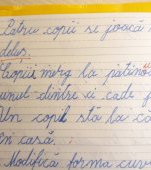 Patru copii se joacă
deluș.
Copiii merg la patino
unul dintre ei cade
Un copil stă la ca
în casă.
Modifică forma cuv